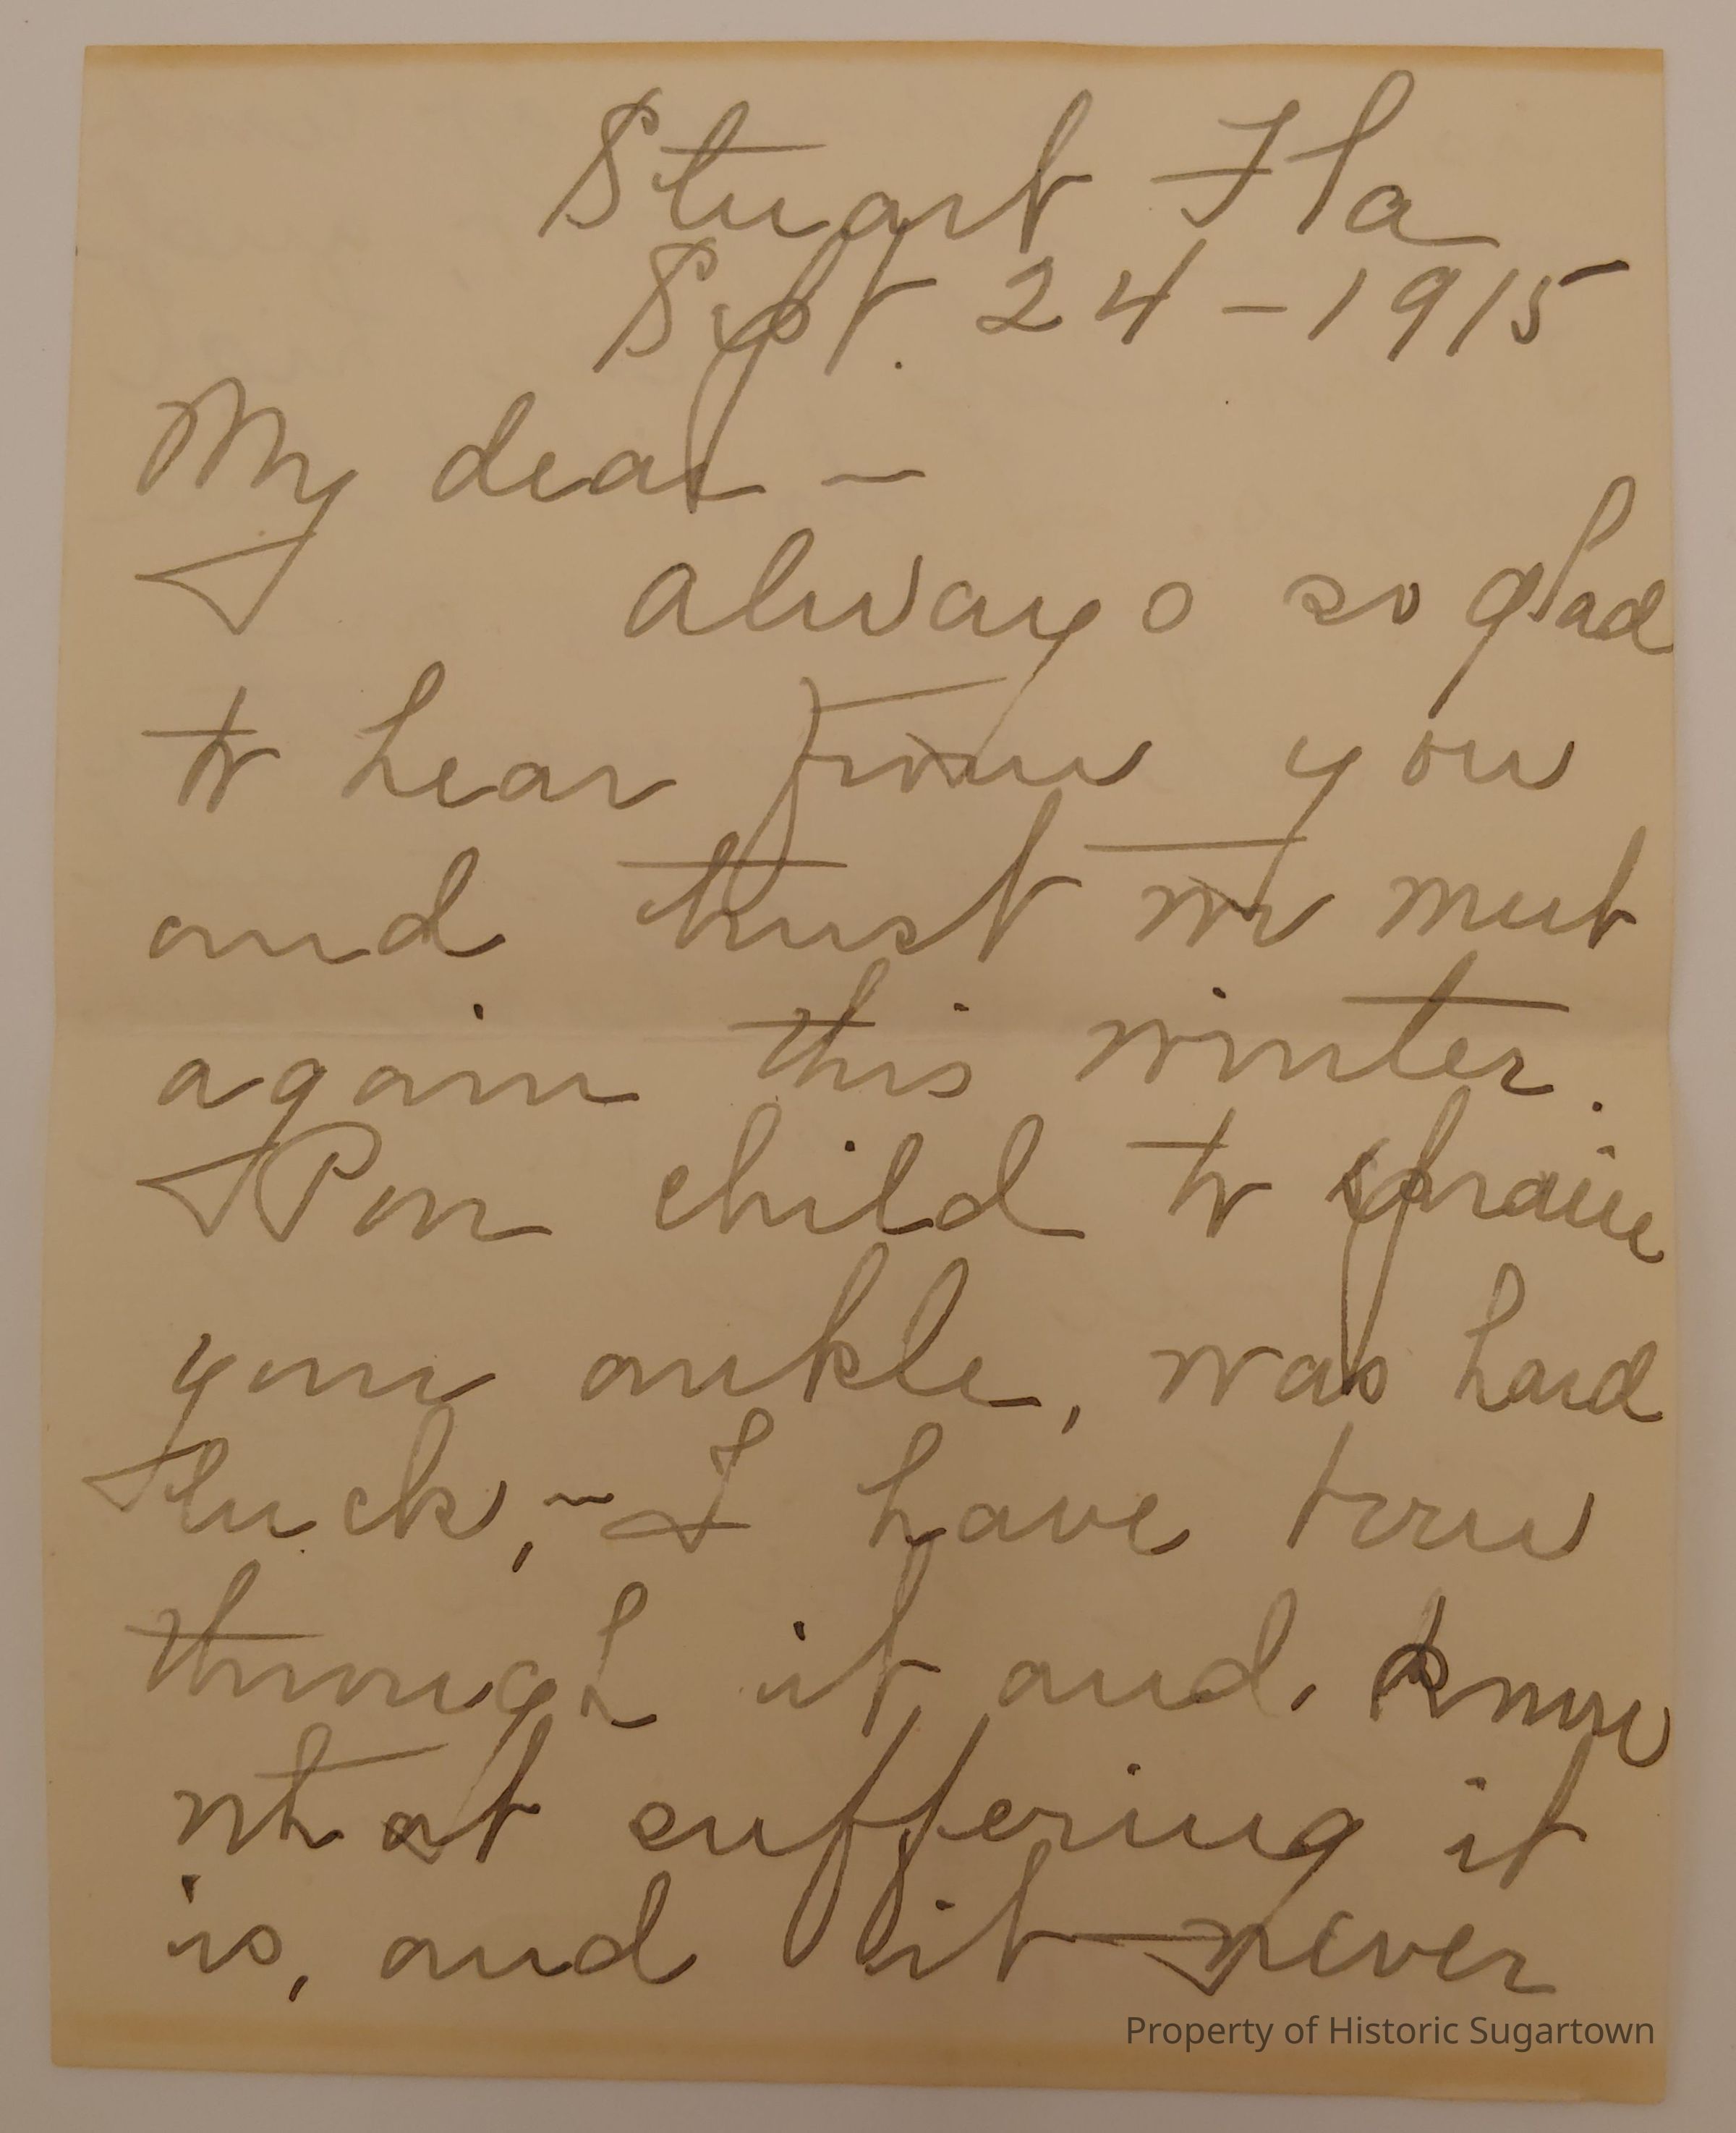 Stuart Fla
Sept. 24 - 1915
My dear -
always so glad
to hear from you
and trust we meet
again this winter.
Poor child to spraine
your ankle, was hard
luck, - I have been
through it and know
what suffering it
is, and it never
Property of Historic Sugartown